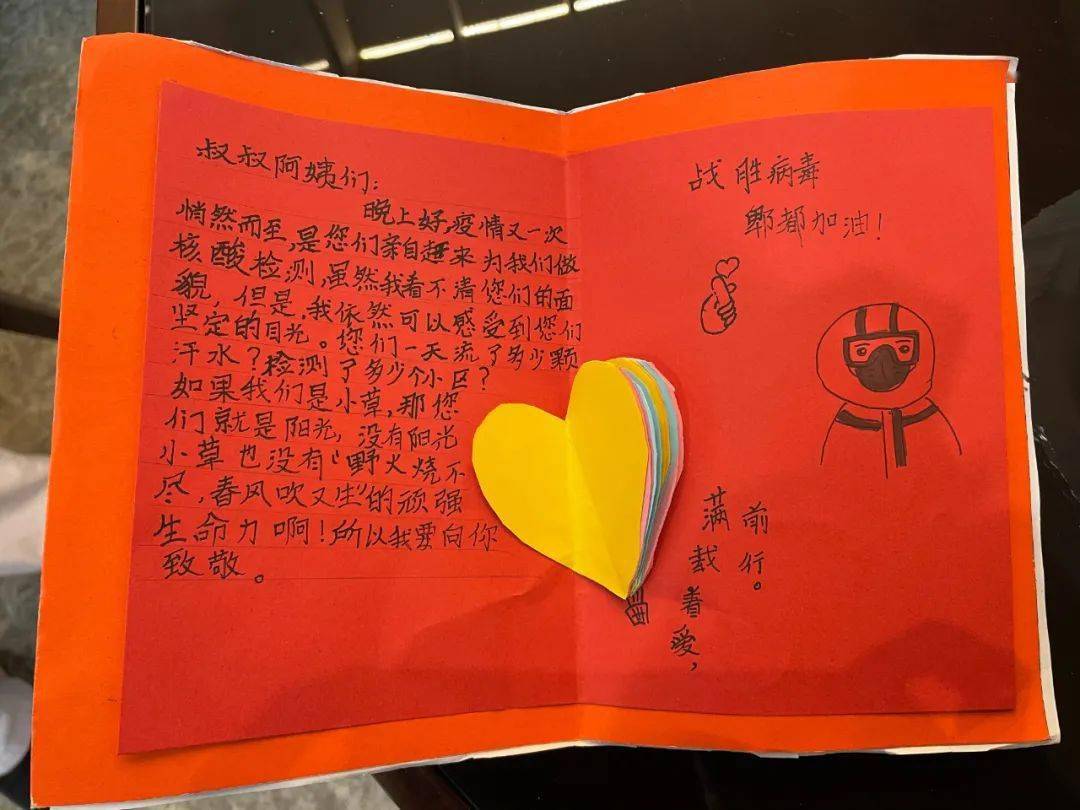 叔叔阿姨们:
晚上好,疫情又一次
悄然而至,是您们亲自赶来为我们做
核酸检测,虽然我看不清您们的面
貌,但是,我依然可以感受到您们
坚定的目光。您们一天流了多少颗
汗水?检测了多少个小区?
如果我们是小草,那您
们就是阳光,没有阳光
小草也没有“野火烧不
尽,春风吹又生”的顽强
生命力啊!所以我要向你
致敬。
战胜病毒
郫都加油!
满载着爱,
前行。